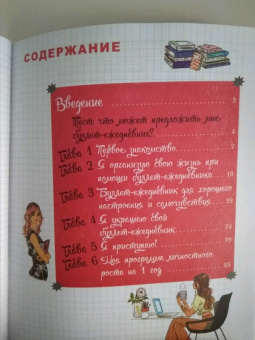 СОДЕРЖАНИЕ
Введение 3
Тест: что может предложить мне
буллет-ежедневник? 4
Глава 1 Первое знакомство 7
Глава 2 Я организую свою жизнь при
помощи буллет-ежедневника
Глава 3 Буллет-ежедневник для хорошего
настроения и самочувствия
Глава 4 Я украшаю свой
буллет-ежедневник
Глава 5 Я приступаю!
Глава 6 Моя программа личностного
роста на 1 год